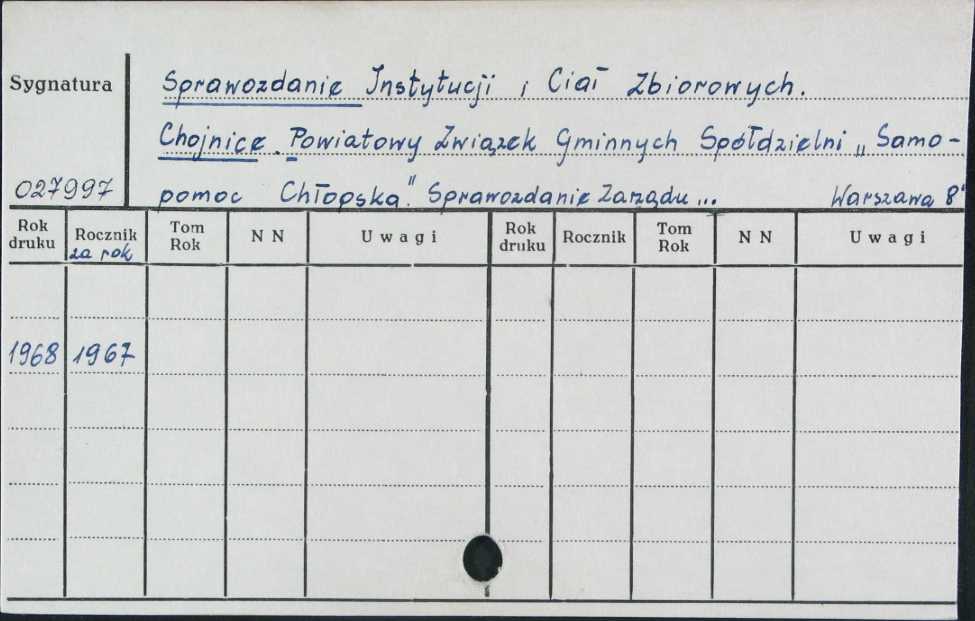 Sygnatura
Sprawozdanie Instytucji i Ciał Zbiorowych.
Chojnice. Powiatowy Związek Gminnych Spółdzielni „Samo-
027997 pomoc Chłopska". Sprawozdanie Zarządu... Warszawa 8°
Rok druku Rocznik za rok Tom Rok N N Uwagi Rok druku Rocznik Tom Rok N N Uwagi
1968 1967